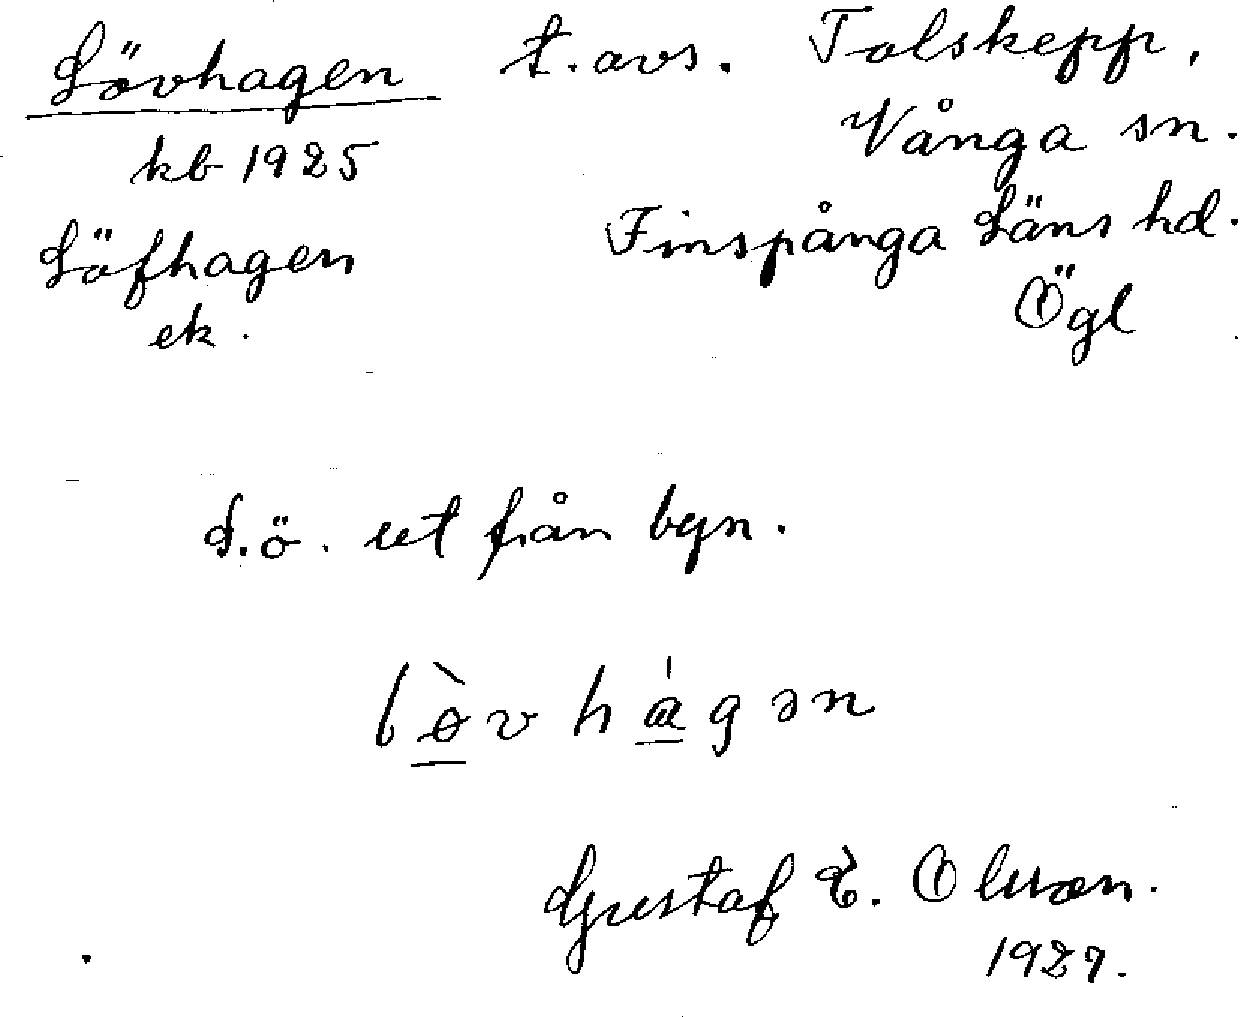 Lövhagen t. avs. Tolskepp,
kb 1925 Vånga sn.
Löfhagen Finspånga Läns hd.
ek. Ögl
S.ö. ut från byn.
lø̀vhágən
Gustaf E. Olsson.
1927.